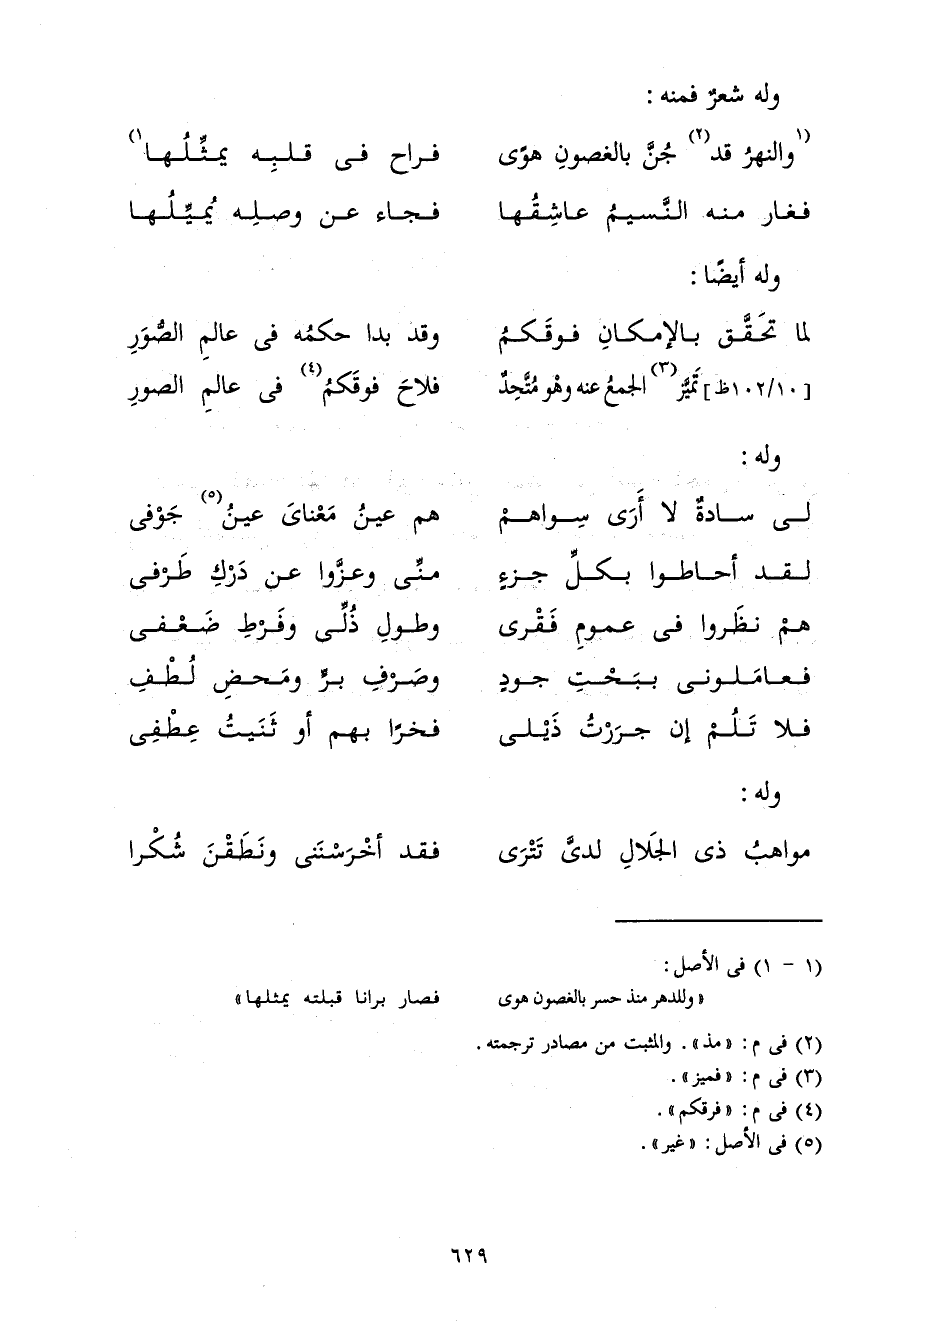 وله شعرٌ فمنه :
(١والنهرُ قد(٢) جُنَّ بالغصونِ هوًى فراح فى قلبِه يمثِّلُها١)
فغار منه النَّسيمُ عاشِقُها فجاء عن وصلِه يُميِّلُها
وله أيضًا :
لما تحَقَّق بالإمكانِ فوقَكمُ وقد بدا حكمُه فى عالمِ الصُّوَرِ
[١٠/١٠٢ظ] تميَّز(٣) الجمعُ عنه وهْو مُتَّحِدٌ فلاحَ فوقَكمُ(٤) فى عالمِ الصورِ
وله :
لى سادةٌ لا أَرَى سِواهمْ هم عينُ مَعْناىَ عينُ(٥) جَوْفى
لقد أحاطوا بكلِّ جزءٍ منِّى وعزُّوا عن دَرْكِ طَرْفى
همْ نظَروا فى عمومِ فَقْرى وطولِ ذُلِّى وفَرْطِ ضَعْفى
فعامَلونى ببَحْتِ جودٍ وصَرْفِ برٍّ ومَحضِ لُطْفِ
فلا تَلُمْ إن جررْتُ ذَيْلى فخرًا بهم أو ثَنَيتُ عِطْفِى
وله :
مواهبُ ذى الجَلالِ لدىَّ تَتْرَى فقد أخْرَسْنَنى ونَطَقْنَ شُكْرا
(١ - ١) فى الأصل :
« وللدهر منذ حسر بالغصون هوى فصار برانا قبلته يمثلها »
(٢) فى م : « مذ » . والمثبت من مصادر ترجمته .
(٣) فى م : « فميز » .
(٤) فى م : « فرقكم » .
(٥) فى الأصل : « غير » .
٦٢٩